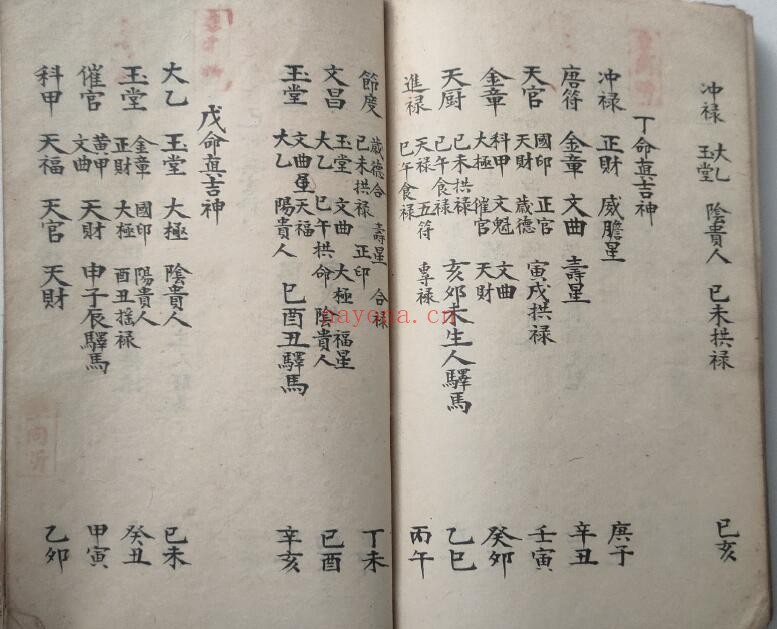 冲禄 大乙 玉堂 陰貴人 巳未拱禄 己亥
丁命真吉神
冲禄 正財 威膽星 庚子
唐符 金章 文曲 壽星 辛丑
天官 國印 正官 天財 歳德 寅戌拱禄 壬寅
金章 科甲 文魁 大極 催官 文曲 天財 癸卯
天厨 巳未拱禄 巳午食禄 亥卯未生人驛馬 乙巳
進禄 天禄 五符 專禄 巳午食禄 丙午
節度 歳德合 壽星 合禄 巳未拱禄 正印 丁未
文昌 玉堂 文曲 大極 福星 大乙 巳午拱命 陰貴人 己酉
玉堂 文曲星 天福 大乙 陽貴人 巳酉丑驛馬 辛亥
戊命真吉神
大乙 玉堂 大極 陰貴人 己未
玉堂 金章 國印 陽貴人 正財 大極 酉丑摇禄 癸丑
催官 黄甲 文曲 天財 申子辰驛馬 甲寅
科甲 天福 天官 天財 乙卯
nayona.cn